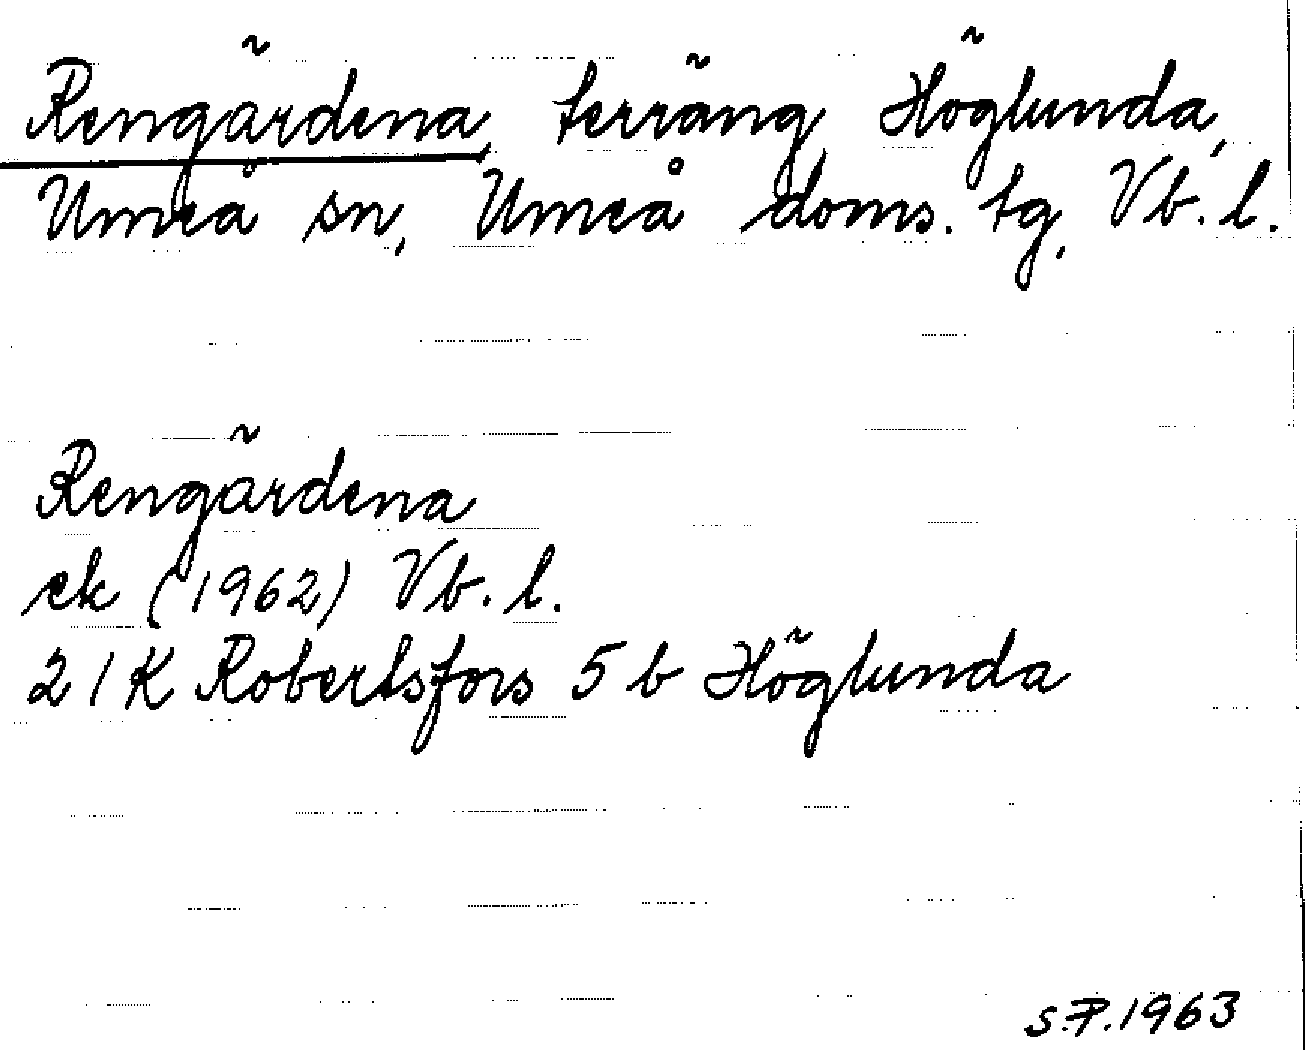 Rengärdena, terräng, Höglunda,
Umeå sn, Umeå doms. tg, Vb. l.
Rengärdena
ek (1962) Vb. l.
21K Robertsfors 5 b Höglunda
S.P. 1963